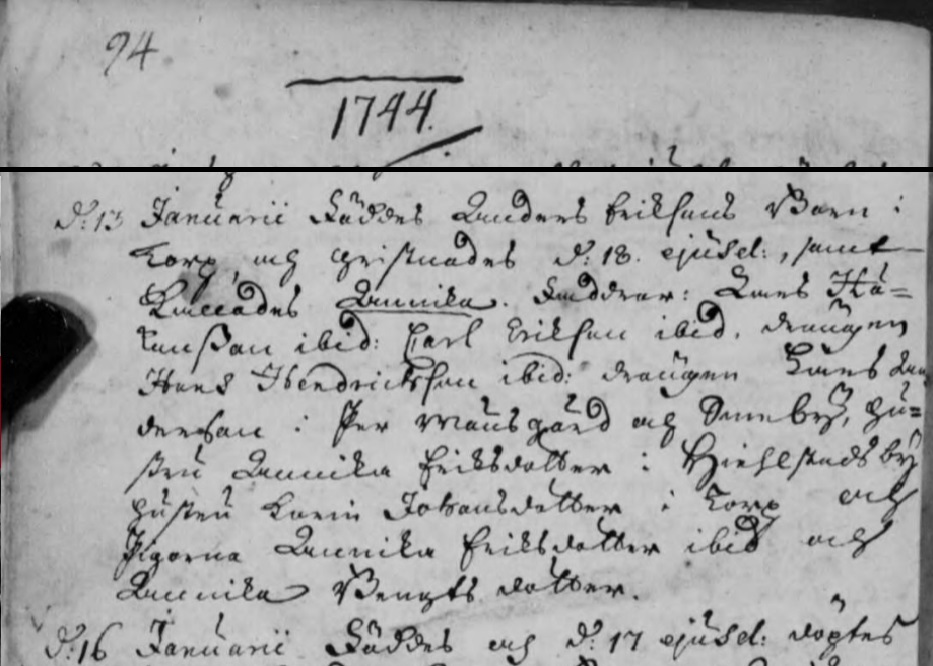 94
1744.
d. 13 Januarii Föddes Anders Erikssons Barn i
Torp, och Christnades d. 18. ejusd:, samt
Kallades Annika. Faddrar: Lars Hå=
kansson ibid: Carl Erikson ibid. drängen
Hans Hendrickson ibid: drängen Lars An
dersson i Per Månsgård och Smeby, hu=
stru Annika Eriksdotter i Hiehlstads by
hustru Karin Johansdotter i Torp och
Pigorna Annika Eriksdotter ibid och
Annika Bengtsdotter.
d. 16 Januarii Föddes och d. 17 ejusd: döptes